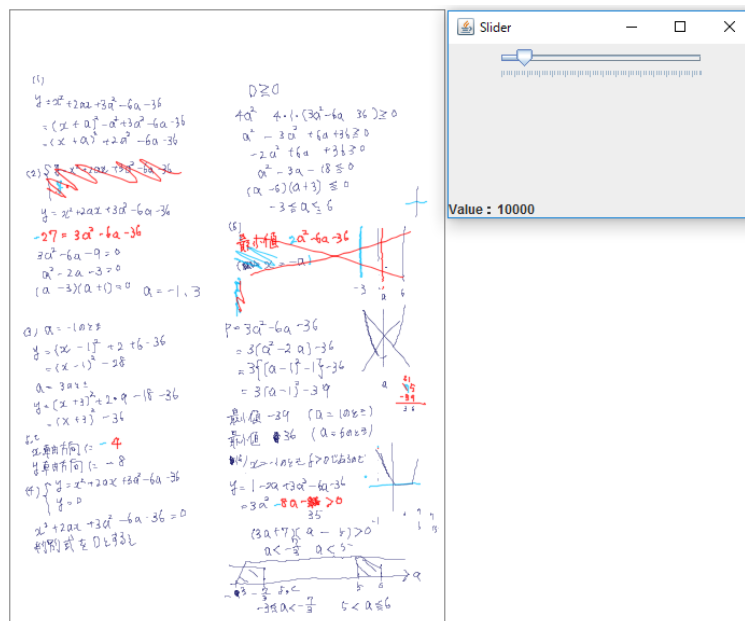 (1)
y=x²+2ax+3a²-6a-36
=(x+a)²-a²+3a²-6a-36
=(x+a)²+2a²-6a-36
(2)
y=x²+2ax+3a²-6a-36
-27=3a²-6a-36
3a²-6a-9=0
a²-2a-3=0
(a-3)(a+1)=0 a=-1, 3
(3) a=-1のとき
y=(x-1)²+2+6-36
=(x-1)²-28
a=3のとき
y=(x+3)²+2・9-18-36
=(x+3)²-36
よって
x軸方向に -4
y軸方向に -8
(4) y=x²+2ax+3a²-6a-36
y=0
x²+2ax+3a²-6a-36=0
判別式をDとすると
D≧0
4a² 4・1・(3a²-6a 36)≧0
a²-3a²+6a+36≧0
-2a²+6a+36≧0
a²-3a-18≦0
(a-6)(a+3)≦0
-3≦a≦6
(5)
最小値 2a²-6a-36
-3 a 6
P=3a²-6a-36
=3(a²-2a)-36
=3{(a-1)²-1}-36
=3(a-1)²-39
a
最小値 -39 (a=1のとき)
36 (a=6のとき)
y=1-2a+3a²-6a-36
=3a²-8a- >0
35
(3a+7)(a-5)>0
a<-7/3 a<5
a
-3 -7/3 5 6
-3≦a<-7/3 5<a≦6
Slider
Value : 10000